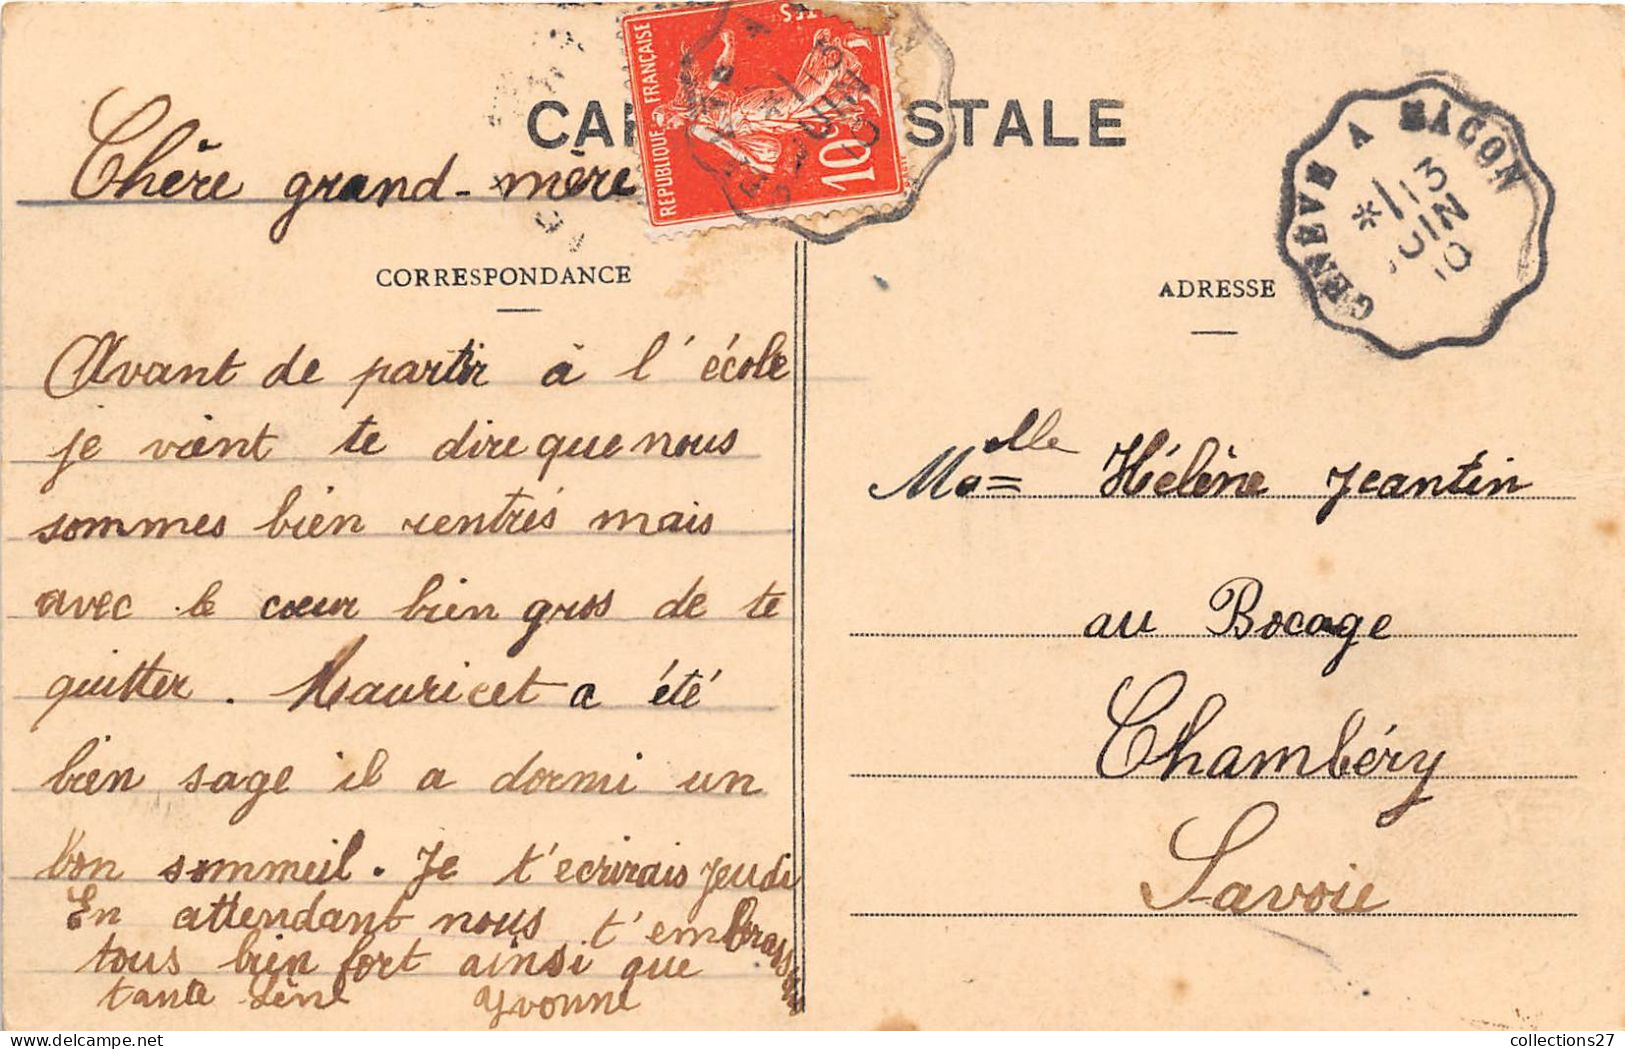 CARTE POSTALE
REPUBLIQUE FRANÇAISE
10c
GENÈVE A MACON
*/13
JUIN
10
Chère grand-mère
CORRESPONDANCE
Avant de partir à l'école
je vient te dire que nous
sommes bien rentrés mais
avec le cœur bien gros de te
quitter. Mauricet a été
bien sage il a dormi un
bon sommeil. Je t'ecrirais jeudi
En attendant nous t'embrassons
tous bien fort ainsi que
tante Lène Yvonne
ADRESSE
Melle Hélène Jeantin
au Bocage
Chambéry
Savoie
collections27